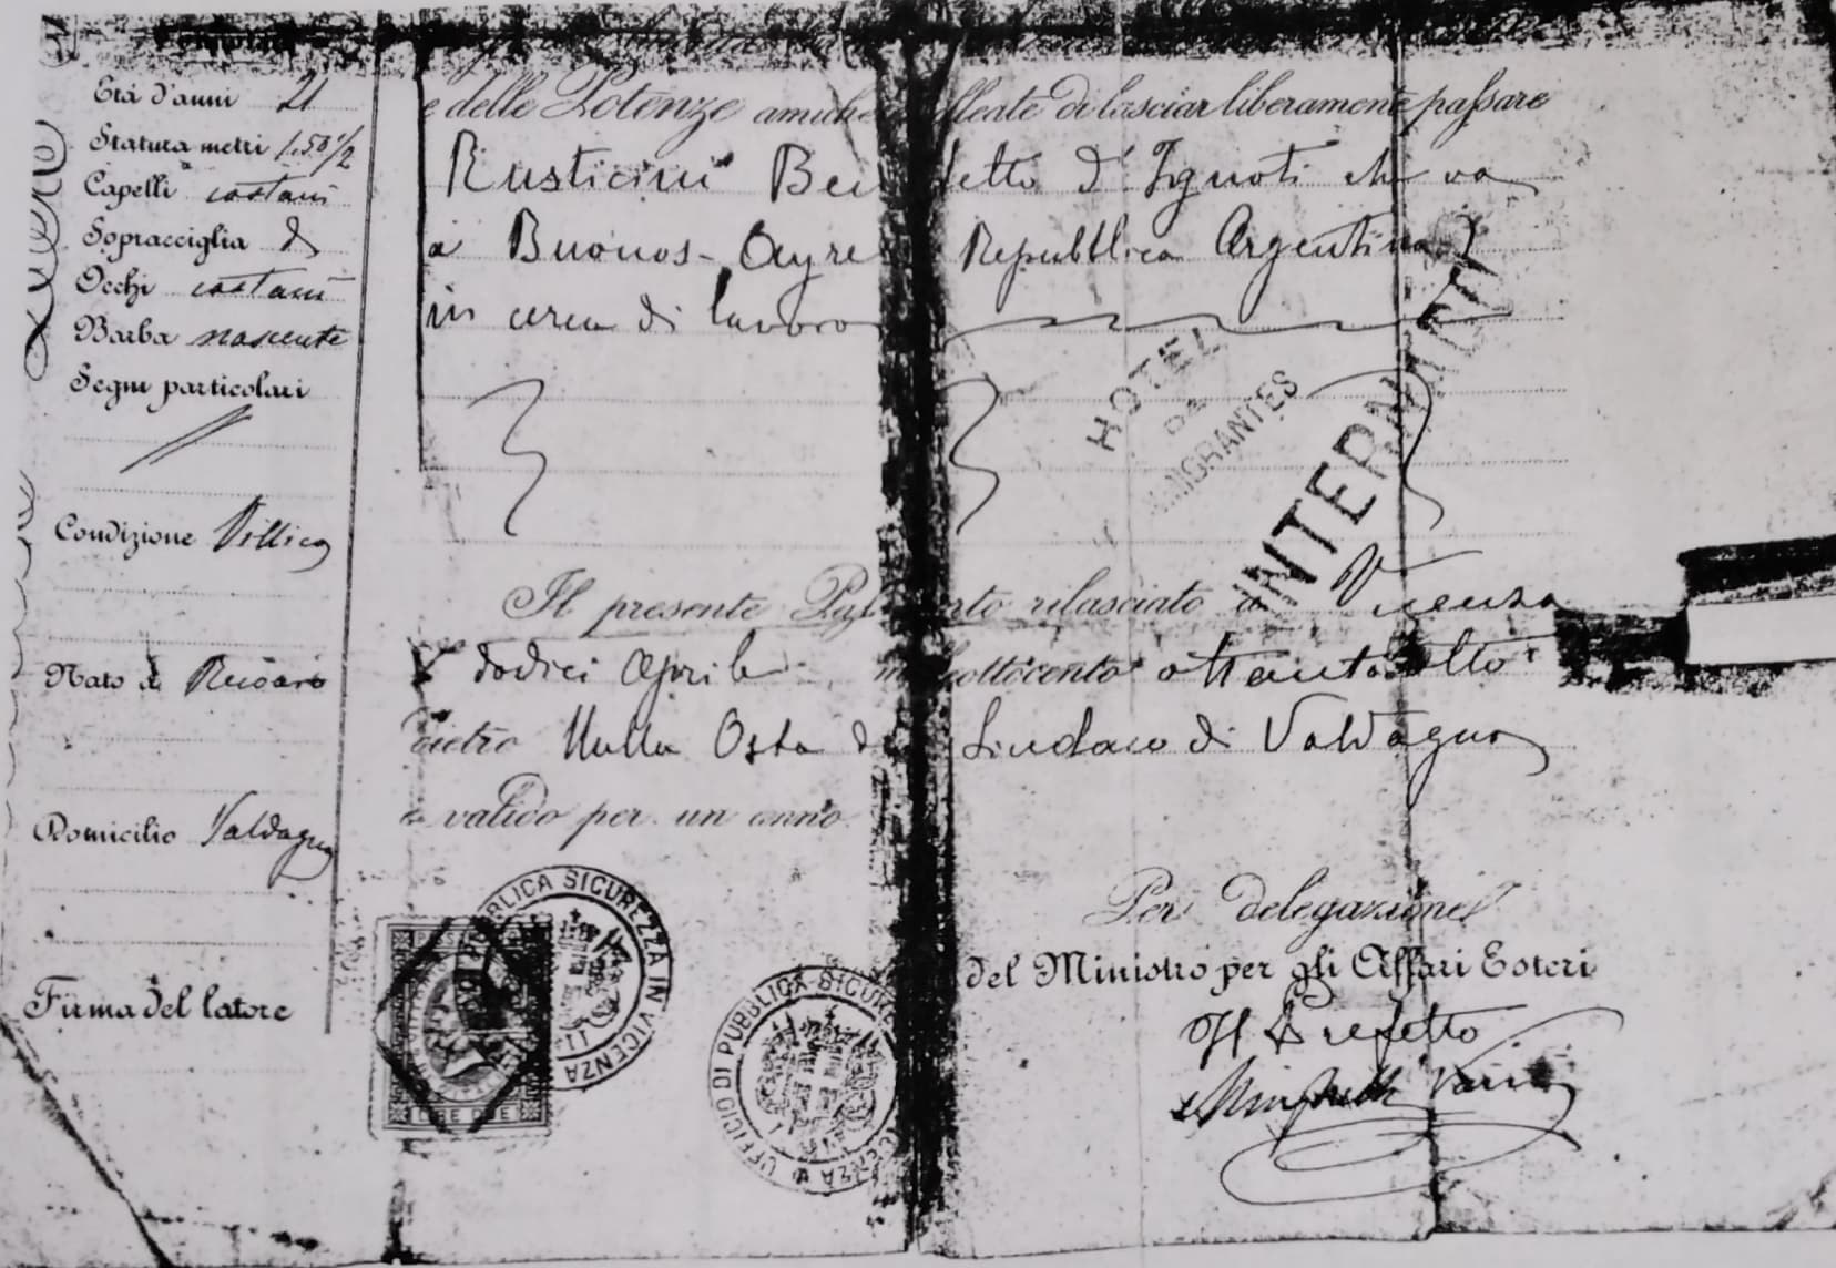 Età d'anni 21
Statura metri 1.50 1/2
Capelli castani
Sopracciglia d
Occhi castani
Barba nascente
Segni particolari
Condizione Villico
Nato a Recoaro
Domicilio Valdagno
Firma del latore
e delle Potenze amiche alleate di lasciar liberamente passare
Rusticini Benedetto d'Ignoti che va
a Buonos-Ayres Repubblica Argentina
in cerca di lavoro
HOTEL
DE
INMIGRANTES
INTERN
Il presente Passaporto rilasciato a Vicenza
dodici Aprile milleottocento ottantaotto
dietro Nulla Osta del Sindaco di Valdagno
è valido per un anno
Per delegazione
del Ministro per gli Affari Esteri
Il Prefetto
PUBBLICA SICUREZZA IN VICENZA
LIRE DUE
UFFICIO DI PUBBLICA SICUREZZA VICENZA